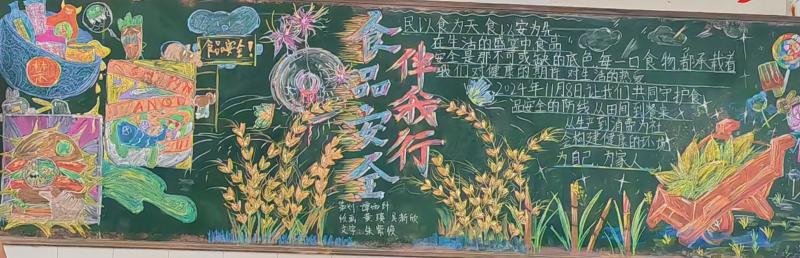 禁
食品安全!
食品安全
伴我行
民以食为天 食以安为先
在生活的盛宴中食品
安全是那不可或缺的底色 每一口食物都承载着
我们对健康的期许 对生活的热爱
2024年11月8日,让我们共同守护食
品安全的防线 从田间到餐桌
从生产到消费 为社
会构建健康的环境
为自己 为家人
策划:
绘画:黄瑛 吴新欣
文字:朱紫